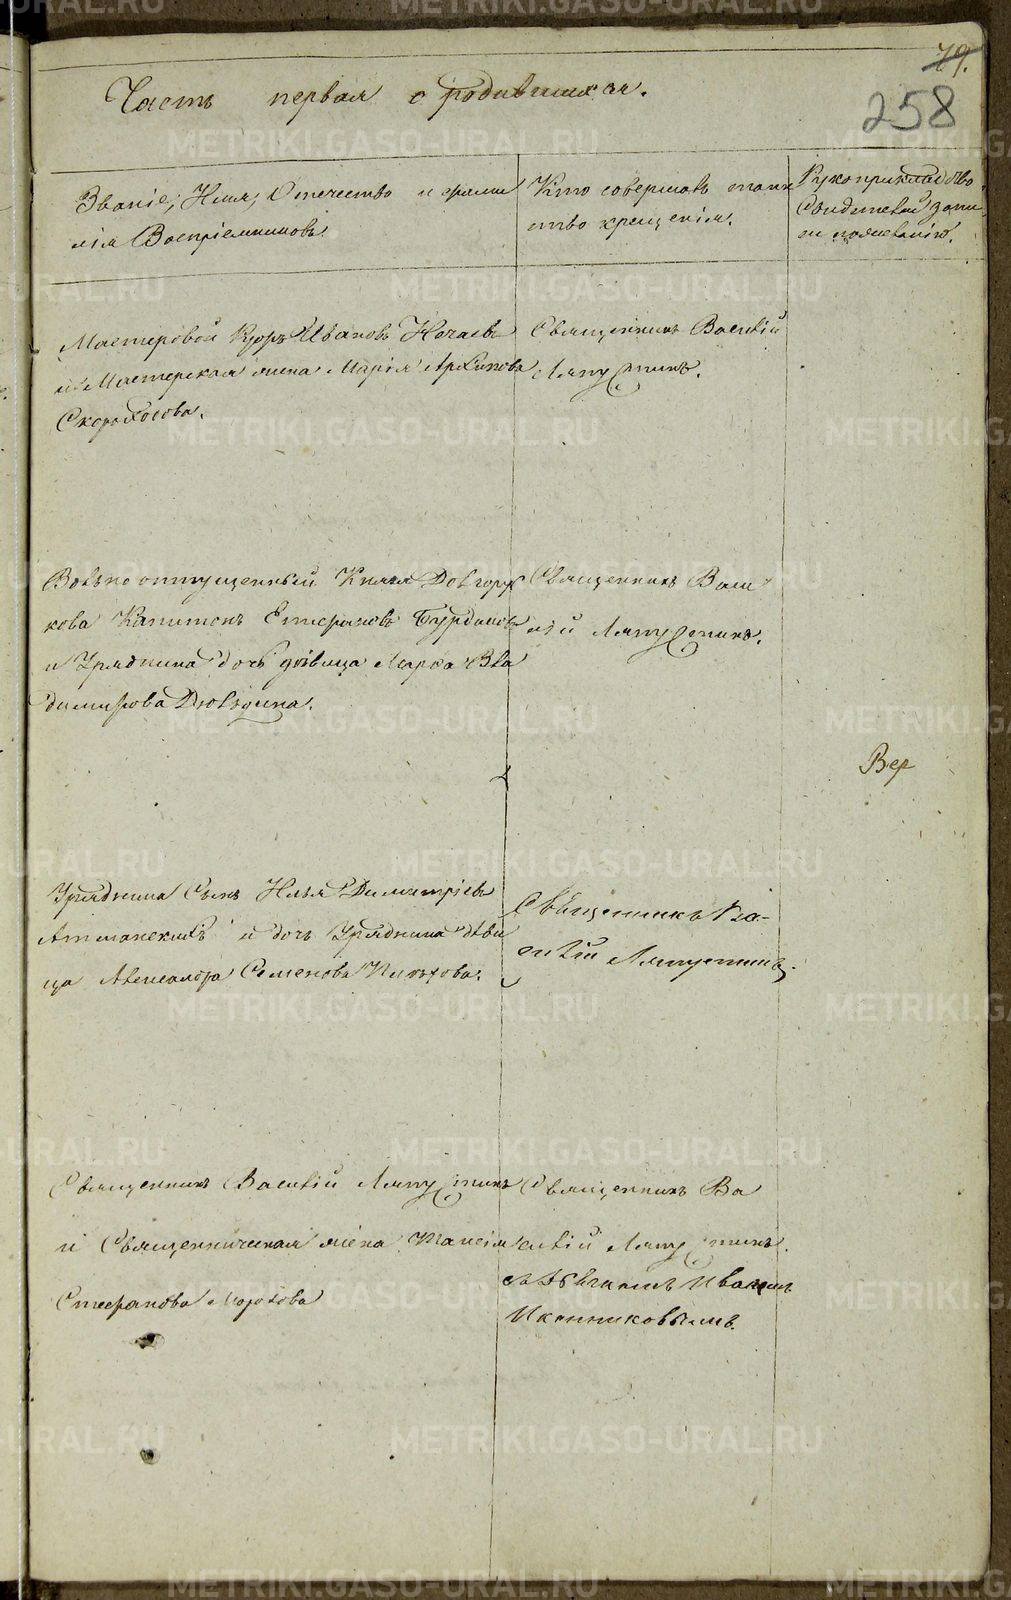 79.
258
Часть первая о родившихся.
Званіе, Имя, Отечество и фами
лія Воспріемниковъ.
Кто совершалъ таин
ство крещенія.
Рукоприкладство
Свидѣтелей запи
си по желанію.
Мастеровой Егоръ Ивановъ Нечаевъ
и Мастерская жена Марія Архипова
Скороходова.
Священникъ Василій
Ляпустинъ.
Вольно отпущенный Князя Долгору
кова Капитонъ Стефановъ Бурдаковъ
и Урядника дочь дѣвица Марѳа Вла
димирова
Священникъ Васи
лій Ляпустинъ.
Вер
Урядника Сынъ Илья Димитріевъ
и дочь Урядника дѣви
ца Александра Семенова
Священникъ Ва-
силій Ляпустинъ.
Священникъ Василій Ляпустинъ
и Священническая жена Таисія
Стефанова Морозова
Священникъ Ва
силій Ляпустинъ.
съ Дьячкомъ Иваномъ
Иконниковымъ.
METRIKI.GASO-URAL.RU